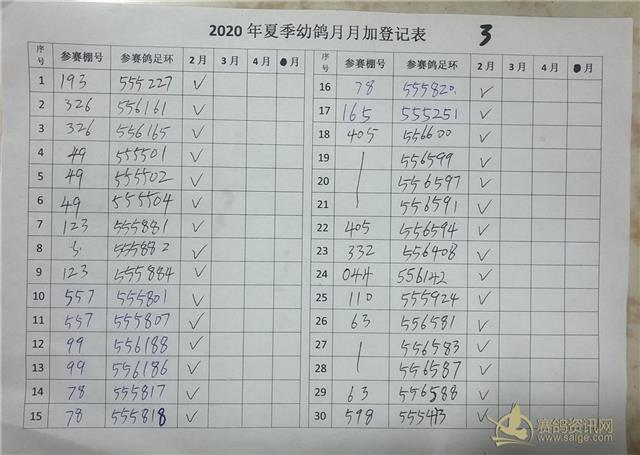 2020 年夏季幼鸽月月加登记表 3
序号 参赛棚号 参赛鸽足环 2月 3月 4月 月
1 193 555227 ✓
2 326 556161 ✓
3 326 556165 ✓
4 49 555501 ✓
5 49 555502 ✓
6 49 555504 ✓
7 123 555881 ✓
8 555882 ✓
9 123 555884 ✓
10 557 555801 ✓
11 557 555807 ✓
12 99 556188 ✓
13 99 556186 ✓
14 78 555817 ✓
15 78 555818 ✓
序号 参赛棚号 参赛鸽足环 2月 3月 4月 月
16 78 555820 ✓
17 165 555251 ✓
18 405 556600 ✓
19 556599 ✓
20 556597 ✓
21 556591 ✓
22 405 556594 ✓
23 332 556408 ✓
24 044 556142 ✓
25 110 555924 ✓
26 63 556581 ✓
27 556583 ✓
28 556587 ✓
29 63 556588 ✓
30 598 ✓
赛鸽资讯网
www.saige.com